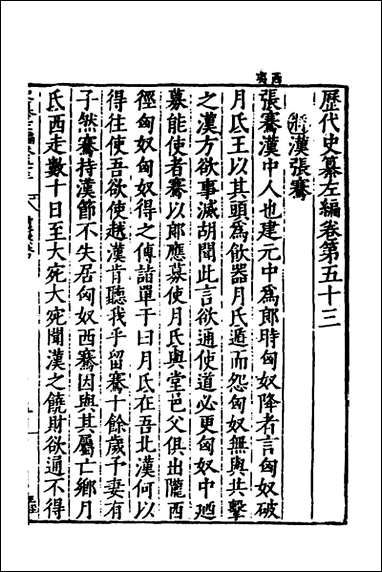 西夷
歷代史纂左編卷第五十三
漢張騫
張騫漢中人也建元中爲郎時匈奴降者言匈奴破
月氏王以其頭爲飲器月氏遁而怨匈奴無與共擊
之漢方欲事滅胡聞此言欲通使道必更匈奴中廼
募能使者騫以郎應募使月氏與堂邑父俱出隴西
徑匈奴匈奴得之傳詣單于曰月氏在吾北漢何以
得往使吾欲使越漢肯聽我乎留騫十餘歲予妻有
子然騫持漢節不失居匈奴西騫因與其屬亡鄉月
氏西走數十日至大宛大宛聞漢之饒財欲通不得